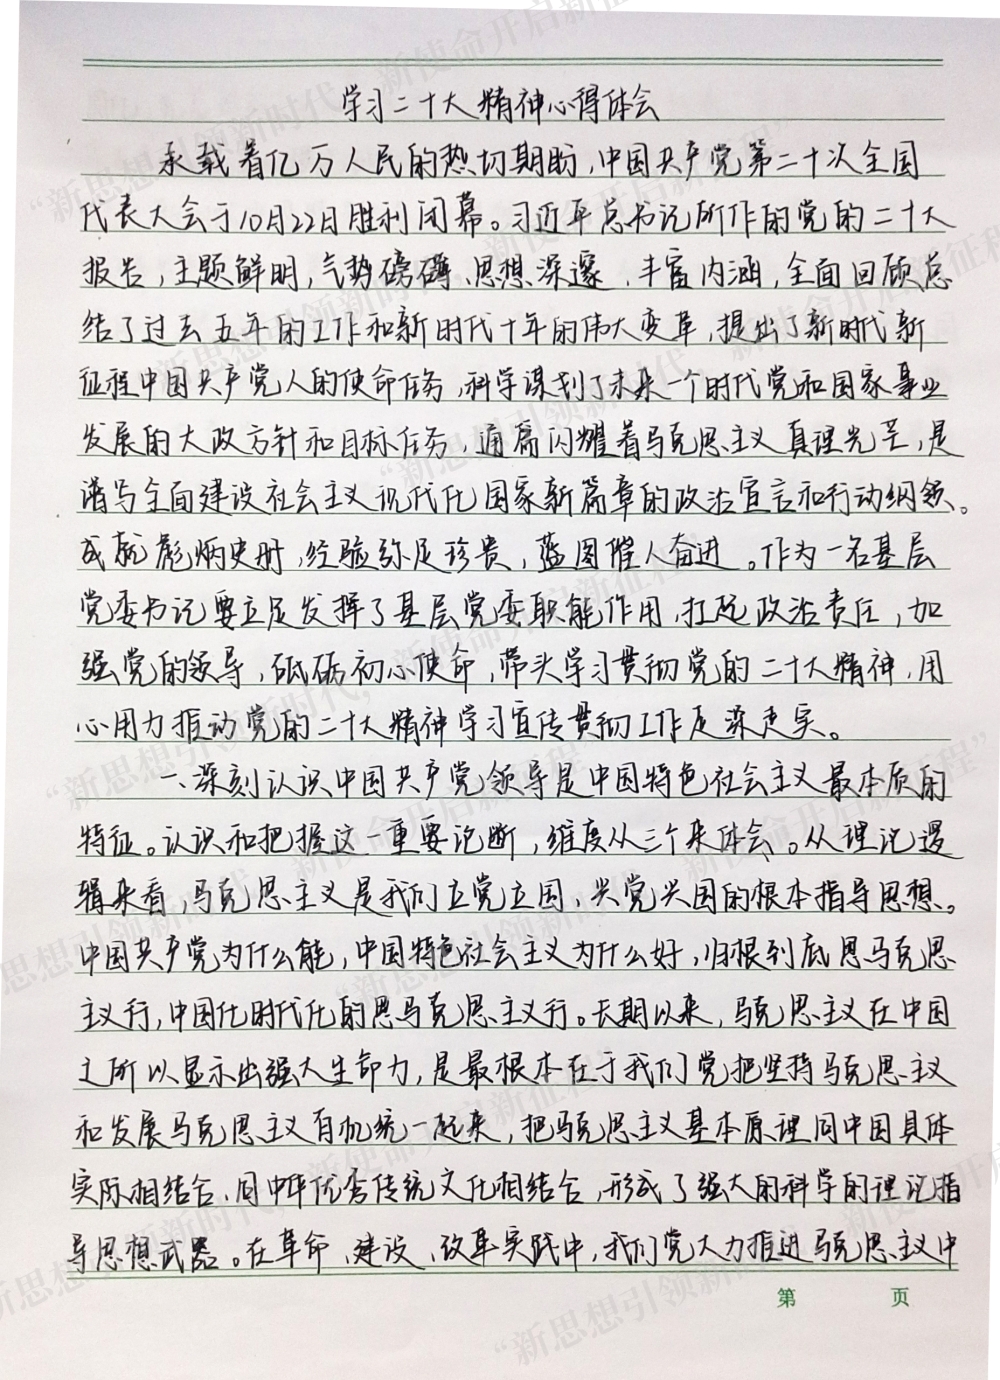 学习二十大精神心得体会
承载着亿万人民的热切期盼,中国共产党第二十次全国
代表大会于10月22日胜利闭幕。习近平总书记所作的党的二十大
报告,主题鲜明,气势磅礴、思想深邃、丰富内涵,全面回顾总
结了过去五年的工作和新时代十年的伟大变革,提出了新时代新
征程中国共产党人的使命任务,科学谋划了未来一个时代党和国家事业
发展的大政方针和目标任务,通篇闪耀着马克思主义真理光芒,是
谱写全面建设社会主义现代化国家新篇章的政治宣言和行动纲领。
成就彪炳史册,经验弥足珍贵,蓝图催人奋进。作为一名基层
党委书记要立足发挥了基层党委职能作用,扛起政治责任,加
强党的领导,砥砺初心使命,带头学习贯彻党的二十大精神,用
心用力推动党的二十大精神学习宣传贯彻工作走深走实。
一、深刻认识中国共产党领导是中国特色社会主义最本质的
特征。认识和把握这一重要论断,维度从三个来体会。从理论逻
辑来看,马克思主义是我们立党立国、兴党兴国的根本指导思想。
中国共产党为什么能,中国特色社会主义为什么好,归根到底思马克思
主义行,中国化时代化的思马克思主义行。长期以来,马克思主义在中国
之所以显示出强大生命力,是最根本在于我们党把坚持马克思主义
和发展马克思主义有机统一起来,把马克思主义基本原理同中国具体
实际相结合、同中华优秀传统文化相结合,形成了强大的科学的理论指
导思想武器。在革命、建设、改革实践中,我们党大力推进马克思主义中
第 页
“新思想引领新时代，新使命开启新征程”